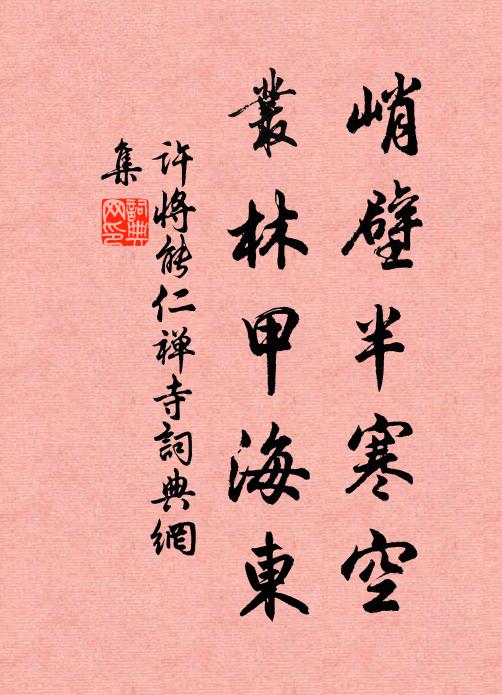 峭壁半寒空
叢林甲海東
许将能仁禅寺詞典網
集
詞典
网印